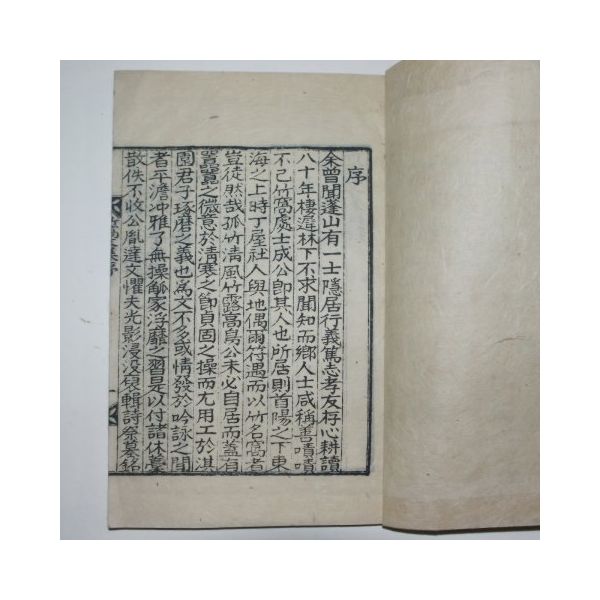 序
余曾聞蓬山有一士隱居行義篤志孝友存心耕讀
八十年棲遲林下不求聞知而鄕人士咸稱善嘖嘖
不已竹窩處士成公卽其人也所居則首陽之下東
海之上時丁屋社人與地偶爾符遇而以竹名窩者
豈徒然哉孤竹淸風竹露高舃公未必自居而蓋有
嚚嚚之微意於淸寒之節貞固之操而尤用工於淇
園君子琢磨之義也爲文不多或情發於吟詠之間
者平澹冲雅了無操觚家浮靡之習是以付諸休藁
散佚不收公胤達文懼夫光影浸没裒輯詩祭墓銘